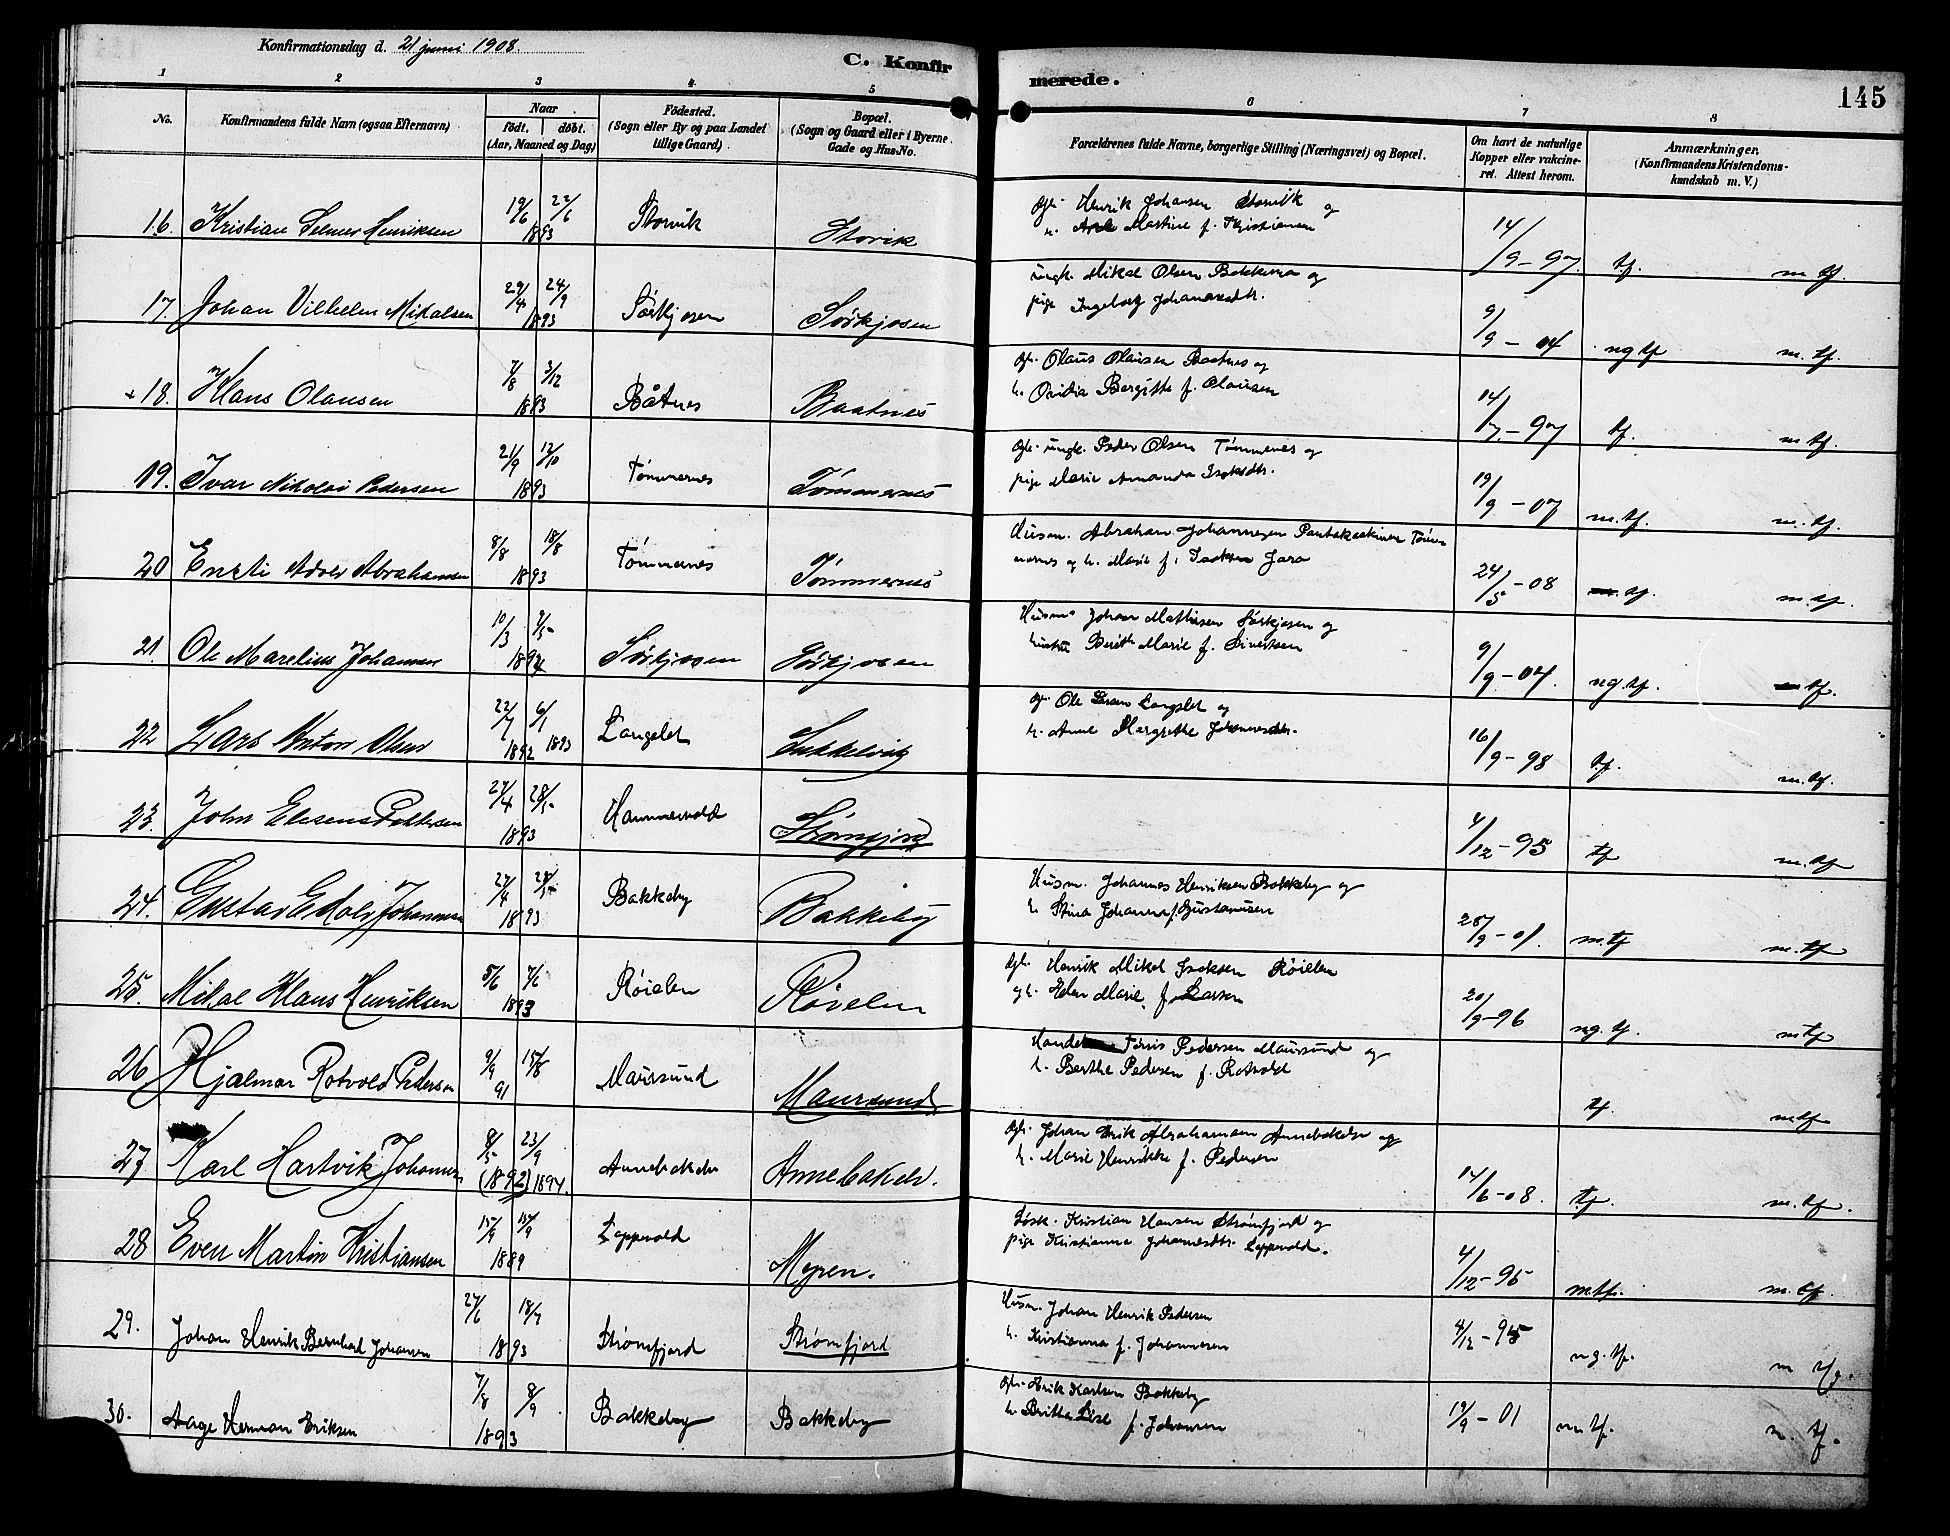 Konfirmationsdag d. 21 juni 1908.
C. Konfirmerede.
145
1 2 3 4 5 6 7 8
No.
Konfirmandens fulde Navn (ogsaa Efternavn)
Naar
født. døbt.
(Aar, Maaned og Dag)
Fødested.
(Sogn eller By og paa Landet
tillige Gaard).
Bopæl.
(Sogn og Gaard eller i Byerne
Gade og Hus-No.
Forældrenes fulde Navne, borgerlige Stilling (Næringsvei) og Bopæl.
Om havt de naturlige
Kopper eller vakcine-
ret. Attest herom.
Anmærkninger.
(Konfirmandens Kristendoms-
kundskab m. V.)
16. Kristian Selmer Henriksen 19/6 22/6 1893 Storvik Storvik
Henrik Johansen Storvik og
Martine f. Kristiansen
14/9-97. tf. m tf.
17. Johan Vilhelm Mikalsen 29/4 24/9 1893 Sørkjosen Sørkjosen
ungk. Mikal Olsen og
pige Ingeborg
9/9-04 ng tf m. tf.
18. Klaus Olausen 7/8 3/12 1893 Båtnes Baatnes
Olaus Olausen Baatnes og
h. Ovidia Bergitte f. Olausen
14/7-97 tf. m. tf.
19. Ivar Nikolai Pedersen 21/9 12/10 1893 Tømmernes Tømmernes
ungk. Peder Olsen Tømmernes og
pige Marie Amanda
19/9-07 m. tf. m. tf.
20 Adolv Abrahamsen 8/8 18/8 1893 Tømmernes Tømmernes
Husm. Abraham Johannesen Tøm-
mernes og h. Marie f. Isaksen
24/5-08 tf. m. tf.
21. Ole Marelius Johansen 10/3 Sørkjosen Sørkjosen
Husm. Johan Mathisen Sørkjosen og
hustru Berith Marie f. Sivertsen
9/9-04. ng. tf. tf.
22 Lars Anton Olsen 22/7 6/1 1892 1893 Langslet
Ole Larsen Langslet og
h. Anne Margrethe
16/9-98 tf. m. tf.
23. John Pettersen 27/4 28/5 1893 Hammervold Strømfjord
4/12-95 tf m. tf
24. Gustav Edolv Johannesen 27/4 1893 Bakkeby Bakkeby
Husm. Johannes Henriksen Bakkeby og
h. Stina Johanna f. Gustavsen
m. tf m. tf
25. Mikal Klaus Henriksen 5/6 7/6 1893 Røielen Røielen
Henrik Mikal Isaksen Røielen
og h. Elen Marie f. Larsen
20/9-96 ng. tf. m tf
26 Hjalmar Rotvold Pedersen 9/9 15/8 91 Maursund Maursund
Pedersen Maursund og
h. Berthe Pedersen f. Rotvold
tf. m tf
27 Karl Hartvik Johansen 8/5 23/9 (1892) 1894.
Johan Erik Abrahamsen og
h. Marie Henrikke f. Pedersen
14/6-08. tf. m. tf.
28 Even Martin Kristiansen 15/9 1889 Leppevold Myren.
Løsk. Kristian Hansen Strømfjord og
pige Kristianna Johannesdtr. Leppevold.
4/12-95 m tf. m. tf.
29. Johan Henrik Bernhard Johansen 27/6 18/7 1893 Strømfjord Strømfjord
Husm. Johan Henrik Pedersen
h. Kristianna f. Johannesen
4/12-95 ng. tf. m tf.
30. Aage Herman Eriksen 7/8 8/9 1893 Bakkeby Bakkeby
Erik Karlsen Bakkeby
h. Britha Lise f. Johansen
19/9-01 m tf. m. tf.